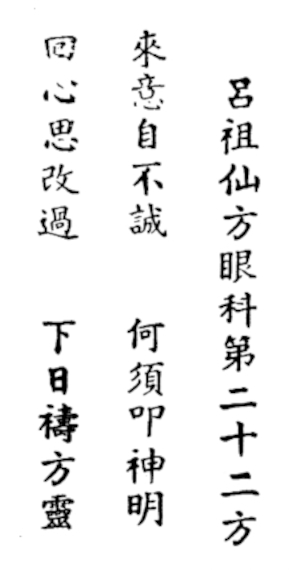 呂祖仙方眼科第二十二方
來意自不誠　何須叩神明
回心思改過　下日禱方靈